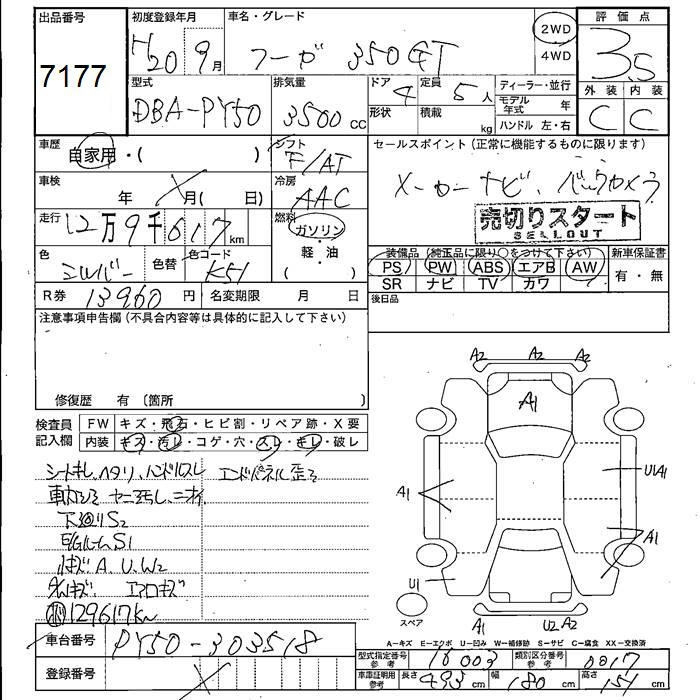 出品番号 7177
初度登録年月 H20 9月
車名・グレード フーガ 350GT
2WD
4WD
評価点 3.5
外装 内装
C C
型式 DBA-PY50
排気量 3500cc
ドア 4
形状
定員 5人
積載 kg
ディーラー・並行
モデル年式 年
ハンドル 左・右
車歴 自家用・( )
シフト F/AT
車検 年 月( 日)
冷房 AAC
走行 12万9千617km
燃料 ガソリン
軽・油
( )
色 シルバー
色替
色コード K51
R券 13960円
名変期限 月 日
セールスポイント(正常に機能するものに限ります)
メーカーナビ、バックカメラ
売切りスタート
SELLOUT
装備品(純正品に限り○をつけて下さい)
新車保証書
PS PW ABS エアB AW
SR ナビ TV カワ
有・無
後日品
注意事項申告欄(不具合内容等は具体的に記入して下さい)
修復歴 有 〔箇所 〕
検査員記入欄
FW キズ・飛石・ヒビ割・リペア跡・X要
内装 キズ・汚レ・コゲ・穴・スレ・キレ・破レ
シートキレ、ヘタリ、ハンドルスレ
エンドパネル歪ミ
下廻りS2
E/GルームS1
A、U、W2
エアロキズ
129617km
A2 A2 A2
A1
A1
U1A1
A1
U1
スペア
A1 U2 A2
A-キズ E-エクボ U-凹み W-補修跡 S-サビ C-腐食 XX-交換済
車台番号 PY50-303518
登録番号
型式指定番号 参考 16003
類別区分番号 参考 0017
車庫証明用 参考 長さ 493cm 幅 180cm 高さ 151cm